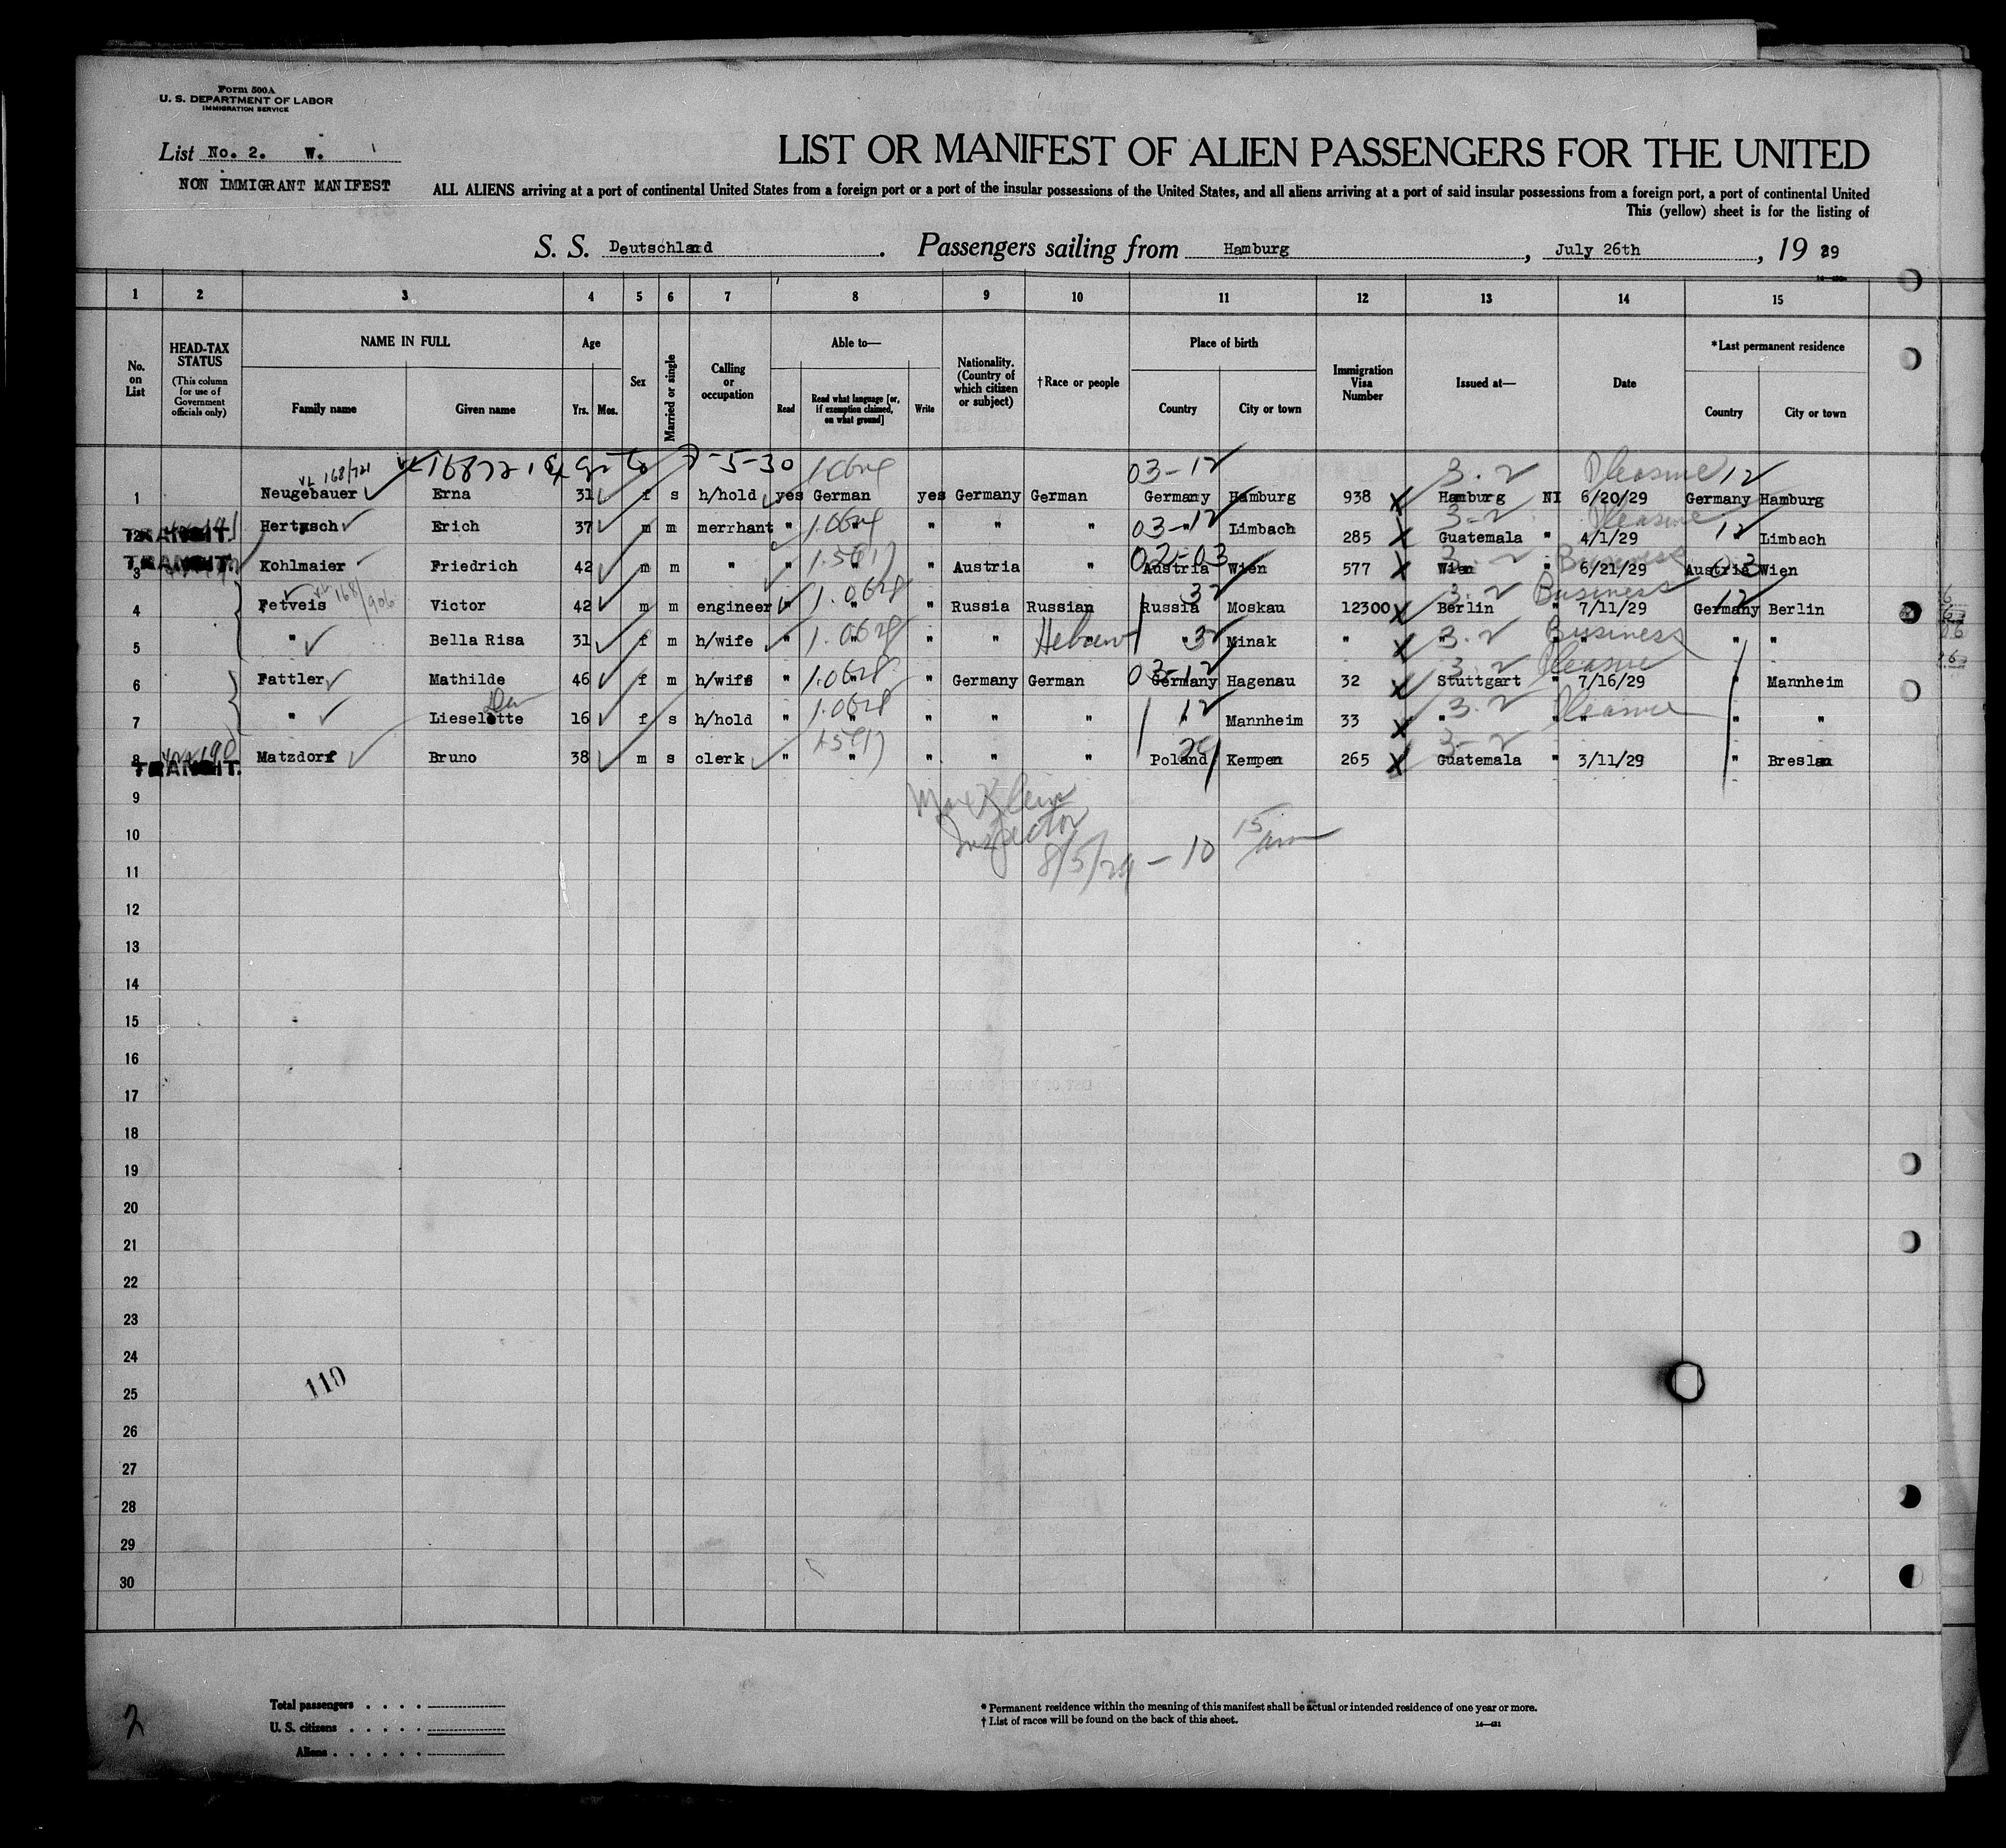 Form 500A
U. S. DEPARTMENT OF LABOR
IMMIGRATION SERVICE
List No. 2. W.
NON IMMIGRANT MANIFEST
LIST OR MANIFEST OF ALIEN PASSENGERS FOR THE UNITED
ALL ALIENS arriving at a port of continental United States from a foreign port or a port of the insular possessions of the United States, and all aliens arriving at a port of said insular possessions from a foreign port, a port of continental United
This (yellow) sheet is for the listing of
S. S. Deutschland. Passengers sailing from Hamburg, July 26th, 19 29
1 2 3 4 5 6 7 8 9 10 11 12 13 14 15
No. on List
HEAD-TAX STATUS (This column for use of Government officials only)
NAME IN FULL
Family name Given name
Age
Yrs. Mos.
Sex
Married or single
Calling or occupation
Able to—
Read
Read what language [or, if exemption claimed, on what ground]
Write
Nationality. (Country of which citizen or subject)
†Race or people
Place of birth
Country City or town
Immigration Visa Number
Issued at—
Date
*Last permanent residence
Country City or town
168/721 5-30 03-12 3.2 Pleasure 12
1 Neugebauer Erna 31 f s h/hold yes German yes Germany German Germany Hamburg 938 Hamburg NI 6/20/29 Germany Hamburg
03-12 3-2 Pleasure 12
2 TRANSIT. Hertzsch Erich 37 m m merrhant " " " " " " Limbach 285 Guatemala " 4/1/29 " Limbach
02-03 Business 03
3 TRANSIT. Kohlmaier Friedrich 42 m m " " " " Austria " Austria Wien 577 Wien " 6/21/29 Austria Wien
168/906 32 3.2 Business 12
4 Fetveis Victor 42 m m engineer " " " Russia Russian Russia Moskau 12300 Berlin " 7/11/29 Germany Berlin
Hebrew 32 3.2 Business
5 " Bella Risa 31 f m h/wife " " " " " " Minak " " " " " "
03-12 3.2 Pleasure
6 Fattler Mathilde 46 f m h/wife " " " Germany German Germany Hagenau 32 Stuttgart " 7/16/29 " Mannheim
12 3.2 Pleasure
7 " Lieselotte 16 f s h/hold " " " " " " Mannheim 33 " " " " "
3-2
8 TRANSIT. Matzdorf Bruno 38 m s clerk " " " " " Poland Kempen 265 Guatemala " 3/11/29 " Breslau
9
Max Klein
Inspector
8/5/29 - 10 15 am
10
11
12
13
14
15
16
17
18
19
20
21
22
23
24
110
25
26
27
28
29
30
2
Total passengers
U. S. citizens
Aliens
* Permanent residence within the meaning of this manifest shall be actual or intended residence of one year or more.
† List of races will be found on the back of this sheet.
14—431